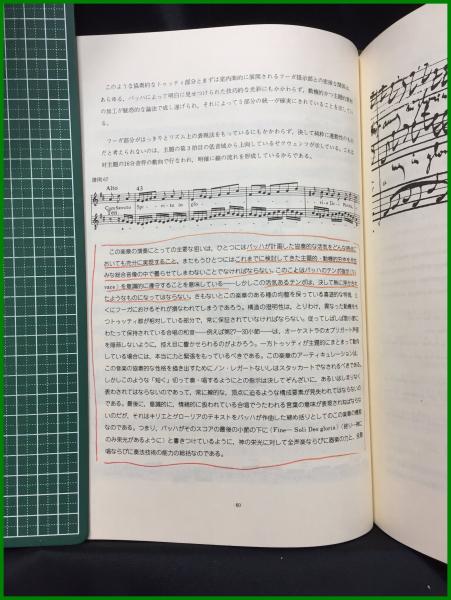 このような協奏的なトゥッティ部分とまずは室内楽的に展開されるフーガ提示部との密接な関係は、
あらゆる、バッハによって明白に見せつけられた技巧的な光彩にもかかわらず、動機的かつ主題的素材
の加工が疑惑的な論法で成し遂げられ、それによって5部分の統一が確実にされていることを示して
いる。
フーガ部分がはっきりとリズム上の表現法をもっているにもかかわらず、決して純粋に運動性のもの
だと考えられないのは、主題の第3拍目の低音域から上向しているゼクヴェンツが示している。これは
対主題の16分音符の動向で行なわれ、明確に線の流れを形成しているからである。
譜例67
Alto 43
Cum Sancto Spi - ri - tu in glo - ri - a De - i Patris,
Ten
この楽章の演奏にとっての主要な狙いは、ひとつにはバッハが計画した協奏的な活気をどんな時点に
おいても充分に実現すること、またもうひとつにはこれまでに検討してきた主題的・動機的
みな総合音像の中で曇らせてしまわないことでなければならない。このことはバッハのテンポ指示(Vi-
vace)を意識的に遵守することを意味している――しかしこの活気あるテンポは、決して
たようなものになってはならない。さもないとこの楽章のある種の均整を保っている喜遊的な特徴、と
くにフーガにおけるそれが損なわれてしまうであろう。構造の澄明性は、とりわけ、異なった動機をも
つトゥッティ群が相対している部分で、常に保証されていなければならない。従ってしばしば長い音に
わたって保持されている合唱の和音――例えば第27―30小節――は、オーケストラの大ブリガート声部
を隠蔽しないように、控え目に響かせられるのがよかろう。一方トゥッティが主題的にまとまって動向
している場合には、本当に力と緊張をもっているべきである。この楽章のアーティキュレーションは、
この音楽の協奏的な性格を描き出すためにノン・レガートないしはスタッカートでなされるべきである。
しかしこのような「短く」切って奏・唱するようにとの指示は決してぞんざいに、あるいはしまりなく
表わされてはならないのであって、常に線的な、頂点に迫るような構成要素が見失われてはならないの
である。最後に、劇的に、情緒的に扱われている合唱でうたわれる言葉の意味が表現されねばならな
いのだが、それはキリエとグローリアのテキストをバッハが作曲した締め括りとしてのこの楽章の機能
なのである。つまり、バッハがそのスコアの最後の小節の下に〈Fine― Soli Deo gloria〉(終り―神に
のみ栄光があるように)と書きつけているように、神の栄光に対して全声楽ならびに器楽の力と、全奏
唱ならびに奏法技術の能力の総括なのである。
60